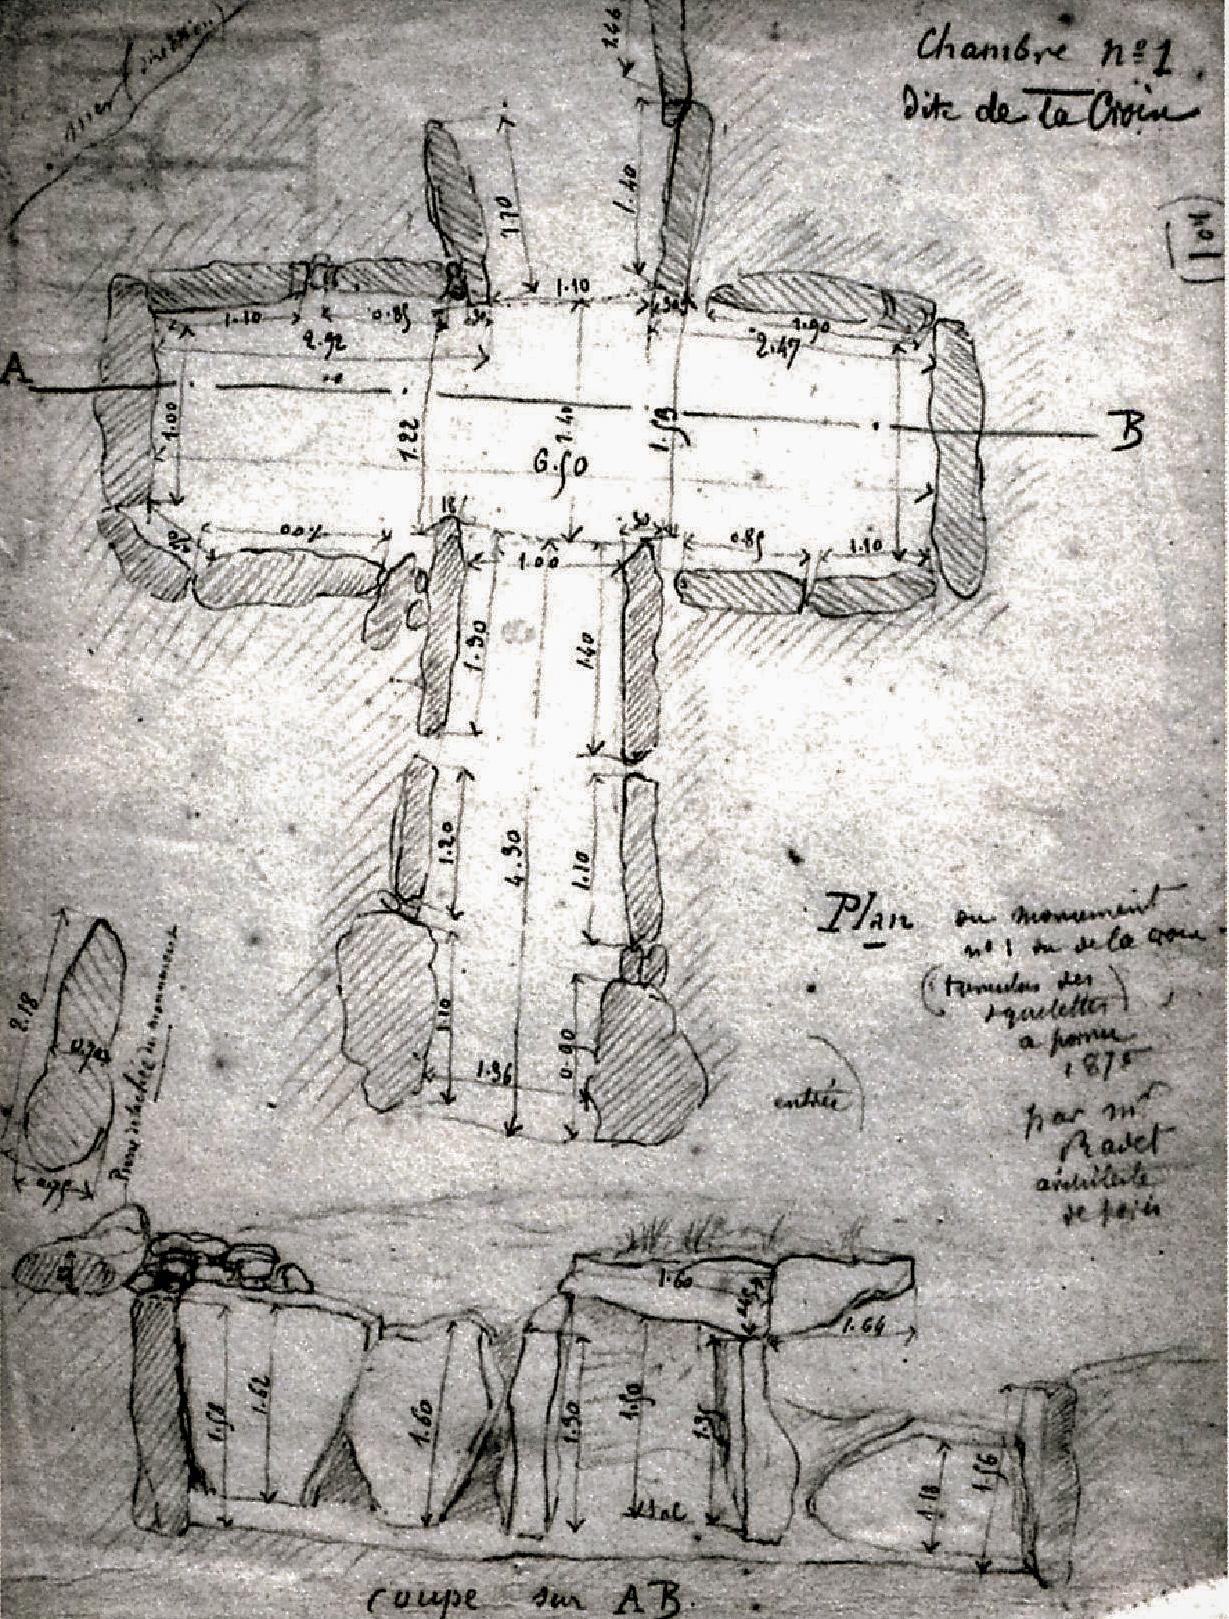 Chambre nº 1
Dite de la Croix
104
2.66
1.70
1.40
1.10
1.10
0.85
2.92
1.90
2.47
A
B
1.00
1.22
1.40
1.59
6.50
0.85
1.10
1.00
1.30
1.40
1.20
4.30
1.10
1.10
0.90
1.36
Plan du monument
nº 1 ou de la croix
(tumulus des
squelettes)
a pornic
1875
par Mr
Radet
architecte
entrée
2.18
0.70
0.75
Pierre detachée du monument
1.60
1.64
1.58
1.62
1.60
1.30
1.50
1.35
sol
1.18
1.56
Coupe sur AB.